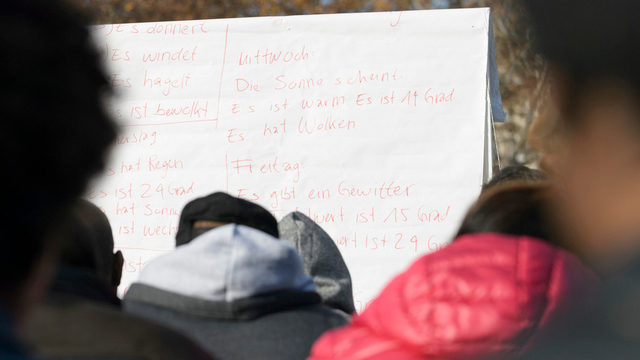 Es donnert
Es windet
Es hagelt
Es ist bewolkt
hat Regen
Es ist 29 Grad
hat Sonne
ist
ist
Mittwoch:
Die Sonne scheint
Es ist warm Es ist 19 Grad
Es hat Wolken
Freitag:
Es gibt ein Gewitter
wert ist 15 Grad
wert ist 29